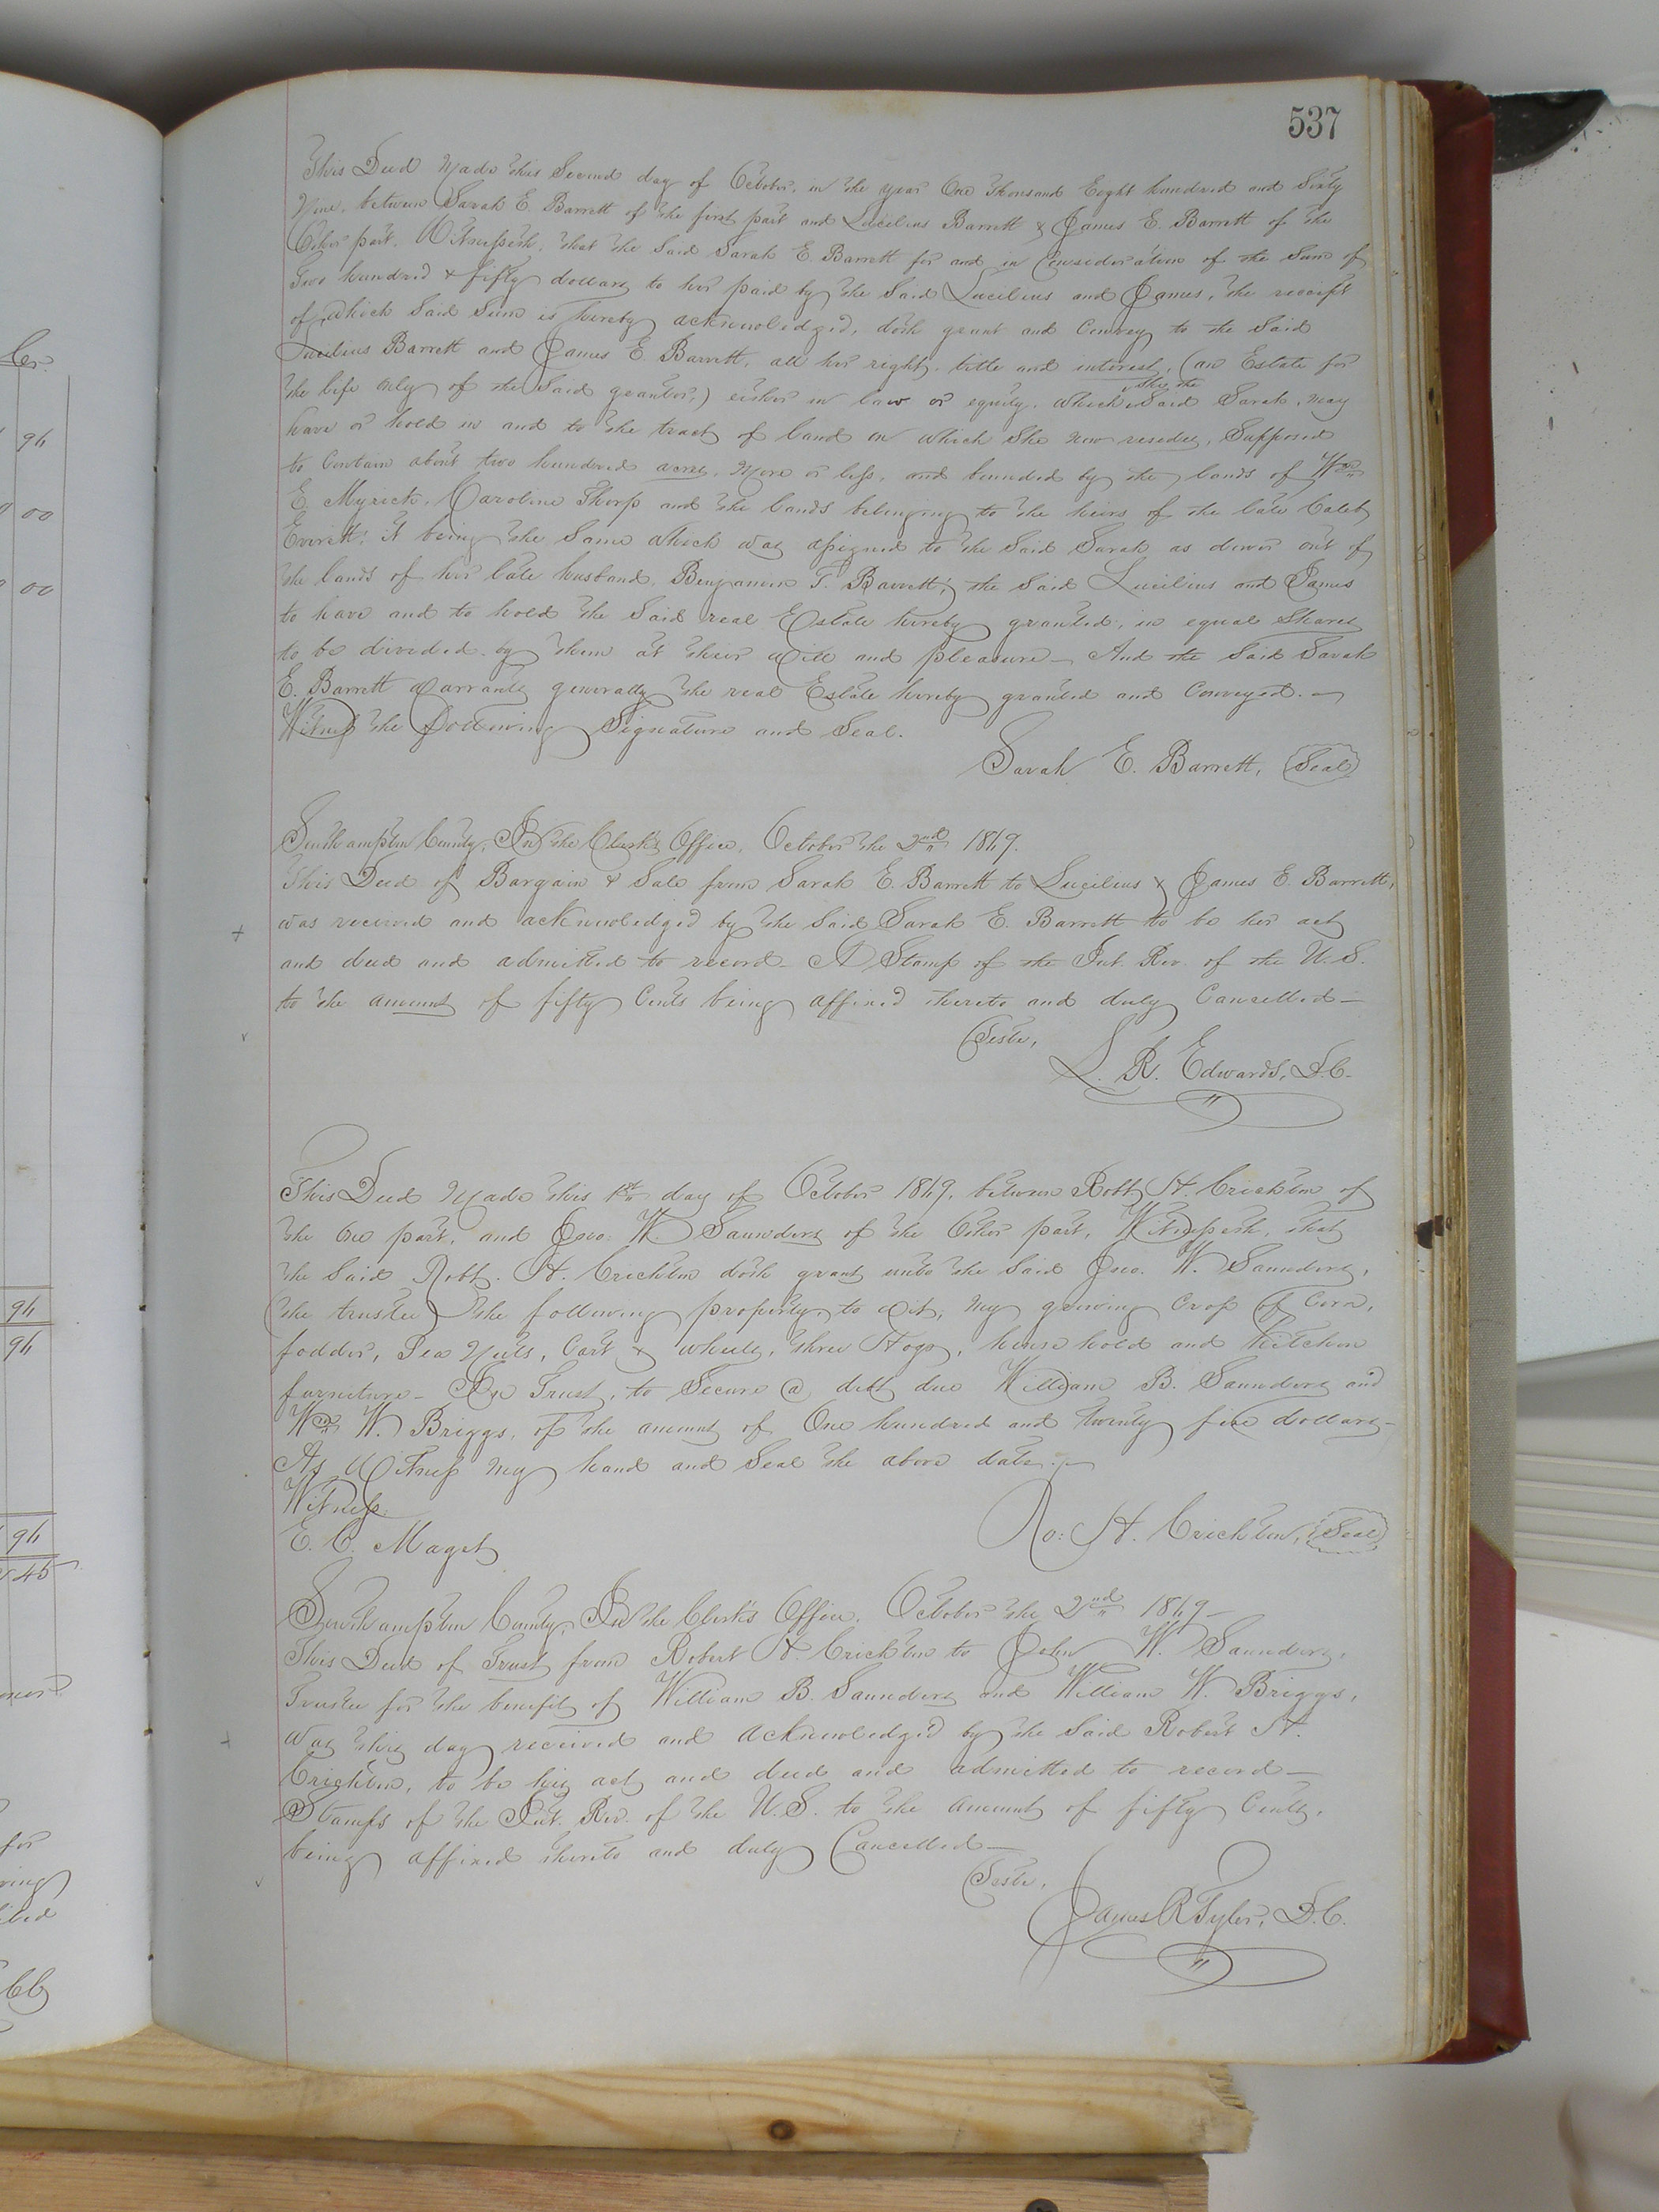 537
This Deed Made this Second day of October, in the year One Thousand Eight hundred and Sixty
Nine, between Sarah E. Barrett of the first part and Lucilius Barrett & James E. Barrett of the
Other part. Witnesseth, that the Said Sarah E. Barrett for and in Consideration of the Sum of
Two hundred & fifty dollars to her paid by the Said Lucilius and James, the receipt
of which Said Sum is hereby acknowledged, doth grant and Convey to the Said
Lucilius Barrett and James E. Barrett, all her right, title and interest, (an Estate for
the life only of the Said grantor,) either in law or equity, which she, the Said Sarah, may
have or hold in and to the tract of land on which She now resides, Supposed
to Contain about two hundred acres, More or less, and bounded by the lands of Wm
E. Myrick, Caroline Thorp and the lands belonging to the heirs of the late Caleb
Everett: it being the Same which was assigned to the Said Sarah as dower out of
the lands of her late husband, Benjamin T. Barrett; the Said Lucilius and James
to have and to hold the Said real Estate hereby granted, in equal Shares
to be divided by them at their will and pleasure— And the Said Sarah
E. Barrett Warrants generally the real Estate hereby granted and Conveyed.—
Witness the following Signature and Seal.
Sarah E. Barrett, Seal
Southampton County, In the Clerk's Office, October the 2nd 1869.
This Deed of Bargain & Sale from Sarah E. Barrett to Lucilius & James E. Barrett,
was received and acknowledged by the Said Sarah E. Barrett to be her act
and deed and admitted to record— A Stamp of the Int. Rev. of the U.S.
to the amount of fifty Cents being affixed thereto and duly Cancelled—
Teste,
L. R. Edwards, D.C.
This Deed Made this 1st day of October 1869, between Robt H. Crichton of
the One part, and Jno. W. Saunders of the Other part, Witnesseth, that
the Said Robt. H. Crichton doth grant unto the Said Jno. W. Saunders,
(the trustee) the following property, to wit, my growing Crop of Corn,
fodder, Pea Nuts, Cart & wheels, three Hogs, house hold and Kitchen
furniture— In Trust, to Secure a debt due William B. Saunders and
Wm W. Briggs, of the amount of One hundred and twenty five dollars—
As Witness my hand and Seal the above date.—
Witness
E. C. Maget
Ro: H. Crichton, Seal
Southampton County, In the Clerk's Office, October the 2nd 1869—
This Deed of Trust from Robert H. Crichton to John W. Saunders,
Trustee for the benefit of William B. Saunders and William W. Briggs,
was this day received and acknowledged by the Said Robert H.
Crichton, to be his act and deed and admitted to record—
Stamps of the Int. Rev. of the U.S. to the amount of fifty Cents,
being affixed thereto and duly Cancelled—
Teste,
James R Tyler, D.C.